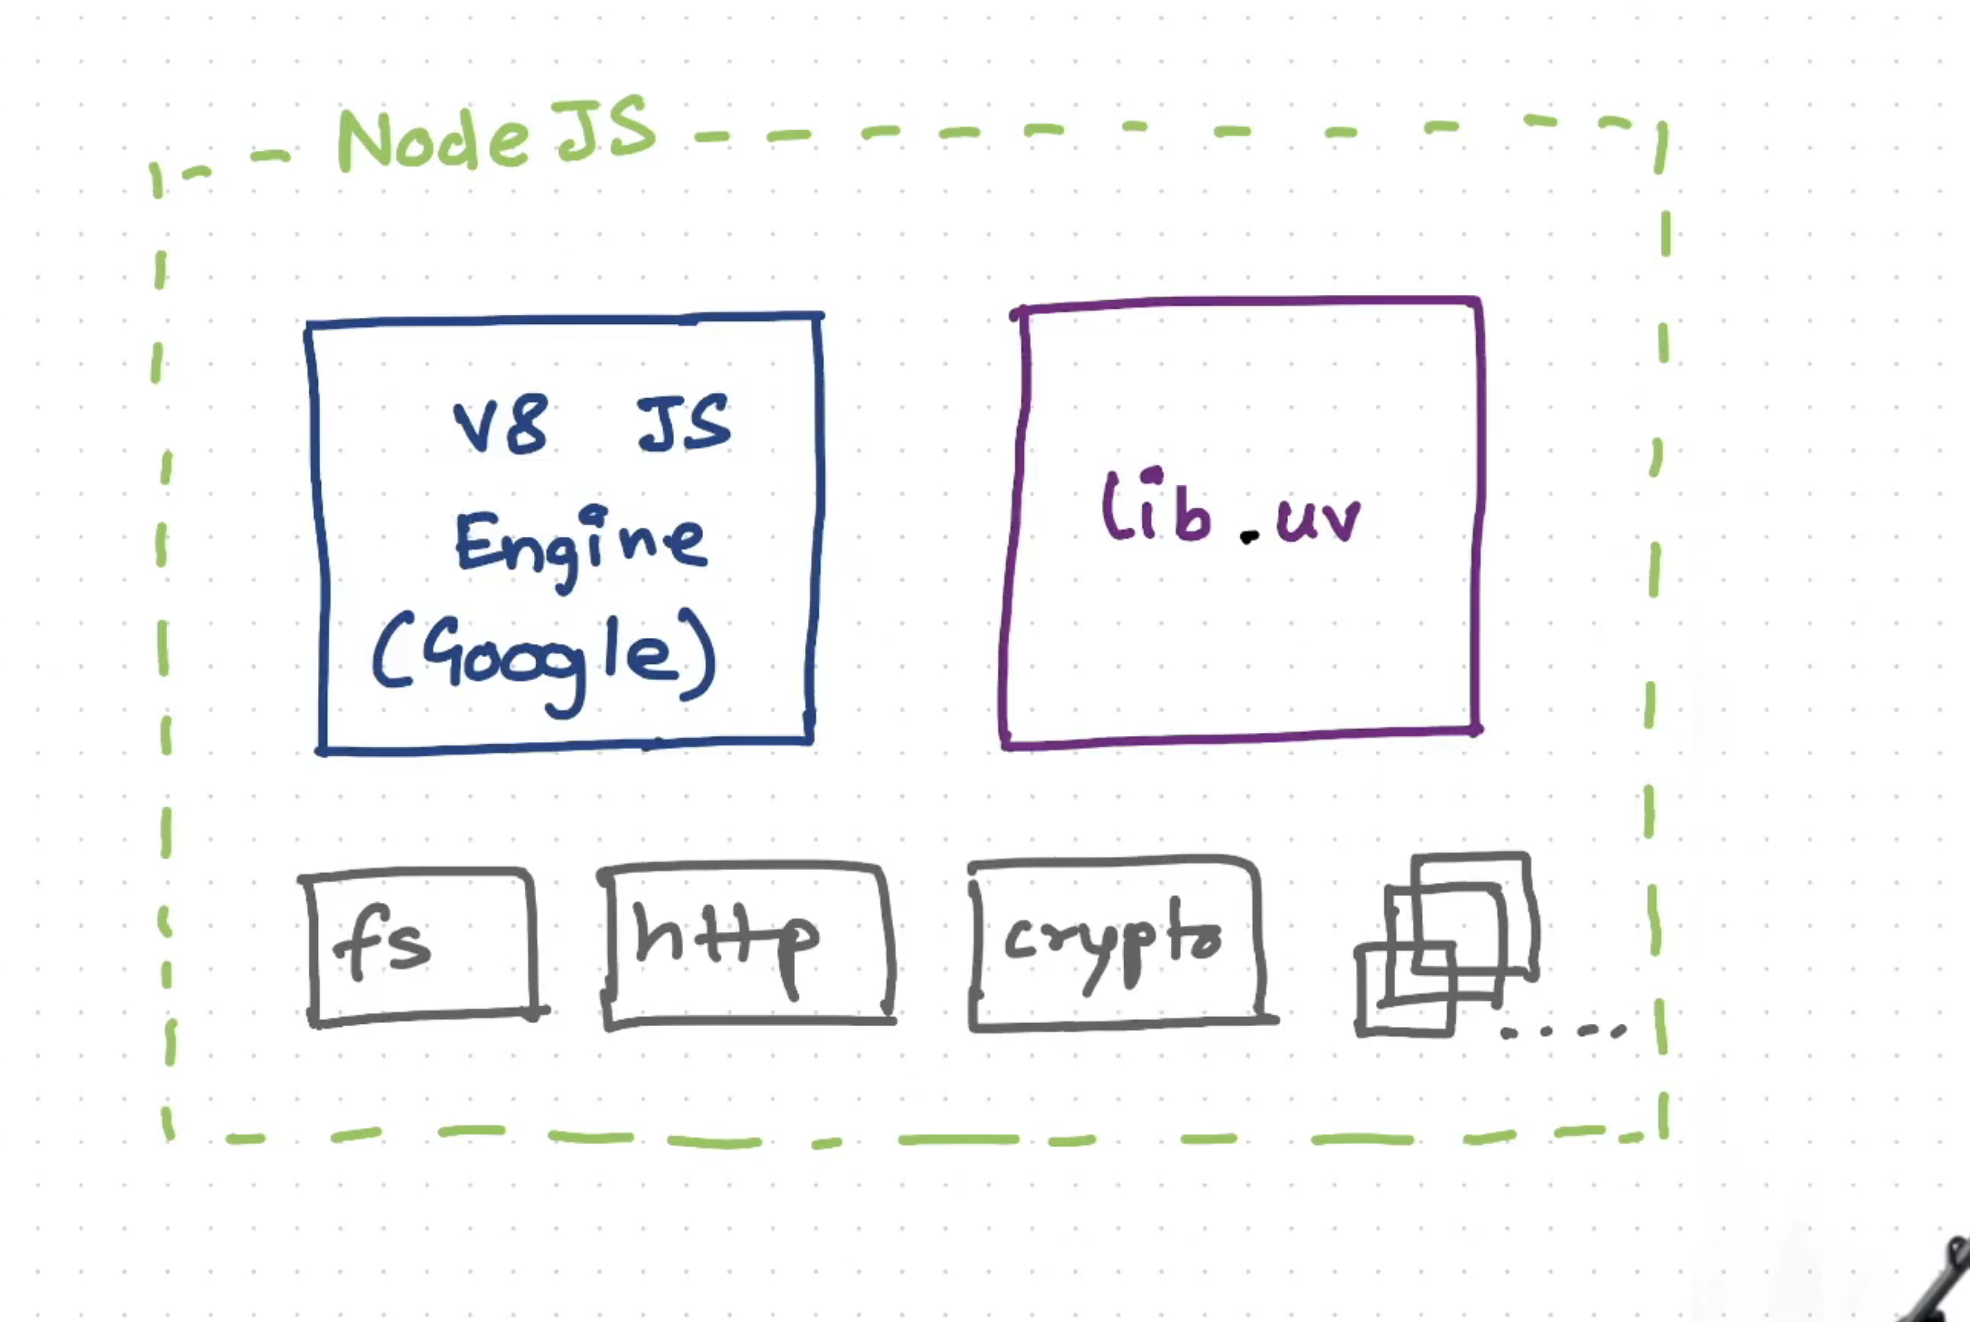 Node JS
V8 JS
Engine
(Google)
lib.uv
fs
http
crypto
....